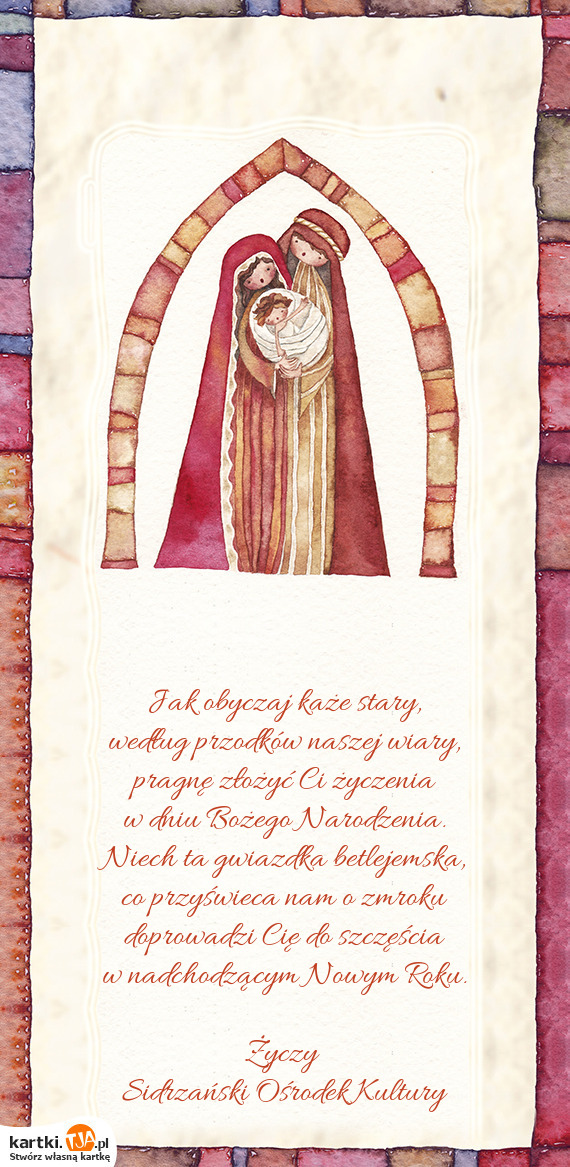 Jak obyczaj każe stary,
według przodków naszej wiary,
pragnę złożyć Ci życzenia
w dniu Bożego Narodzenia.
Niech ta gwiazdka betlejemska,
co przyświeca nam o zmroku
doprowadzi Cię do szczęścia
w nadchodzącym Nowym Roku.
Życzy
Sidrzański Ośrodek Kultury
kartki.TJA.pl
Stwórz własną kartkę